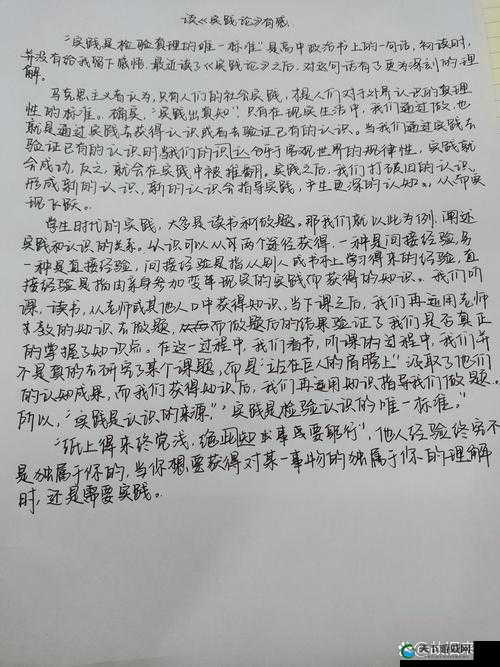 读《实践论》有感
"实践是检验真理的唯一标准"是高中政治书上的一句话,初读时,
并没有给我留下感悟。最近读了《实践论》之后,对这句话有了更为深刻的理
解。
马克思主义者认为,只有人们的社会实践,才是人们对于外界认识的真理
性的标准。确实,"实践出真知"。只有在现实生活中,我们通过做,也
就是通过实践去获得认识或者去验证已有的认识。当我们通过实践去
验证已有的认识时,当我们的认识合乎于客观世界的规律性,实践就
会成功,反之,就会在实践中被推翻。实践之后,我们打破旧的认识,
形成新的认识,新的认识会指导实践,产生更深的认知。从而实
现飞跃。
学生时代的实践,大多是读书和做题。那我们就以此为例,阐述
实践和认识的关系。知识可以从两个途径获得,一种是间接经验,另
一种是直接经验,间接经验是指从别人或书本上学习得来的经验,直
接经验是指由亲身参加变革现实的实践而获得的知识。我们听
课,读书,从老师或其他人口中获得知识,当下课之后,我们再运用老师
教的知识去做题,而做题后的结果验证了我们是否真正
的掌握了知识点。在这一过程中,我们看书,听课的过程中,我们并
不是真的去研究了某个课题,而是"站在巨人的肩膀上"汲取了他们
的认知成果,而我们获得知识后,我们再运用知识指导我们做题。
所以,"实践是认识的来源","实践是检验认识的唯一标准。"
"纸上得来终觉浅,绝知此事要躬行",他人经验终究不
是独属于你的,当你想要获得对某一事物的独属于你的理解
时,还是需要实践。
天下游戏网